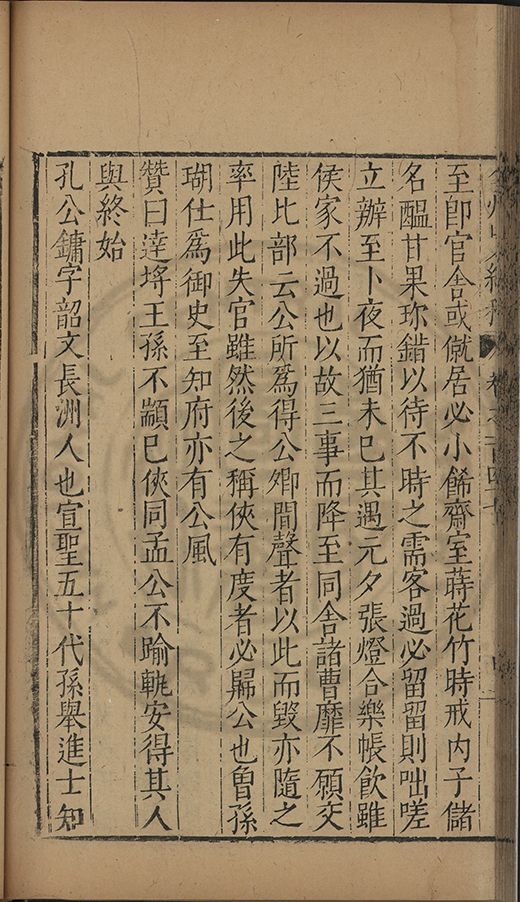 弇州山人續稿 卷之一百四十七
至卽官舍或僦居必小餙齋室蒔花竹時戒內子儲
名醖甘果珎錯以待不時之需客過必留留則咄嗟
立辦至卜夜而猶未巳其遇元夕張燈合樂帳飮雖
侯家不過也以故三事而降至同舍諸曹靡不願交
陸比部云公所爲得公卿間聲者以此而毀亦隨之
率用此失官雖然後之稱俠有度者必歸公也魯孫
瑚仕爲御史至知府亦有公風
贊曰逹埓王孫不顓巳俠同孟公不踰軌安得其人
與終始
孔公鏞字韶文長洲人也宣聖五十代孫舉進士知